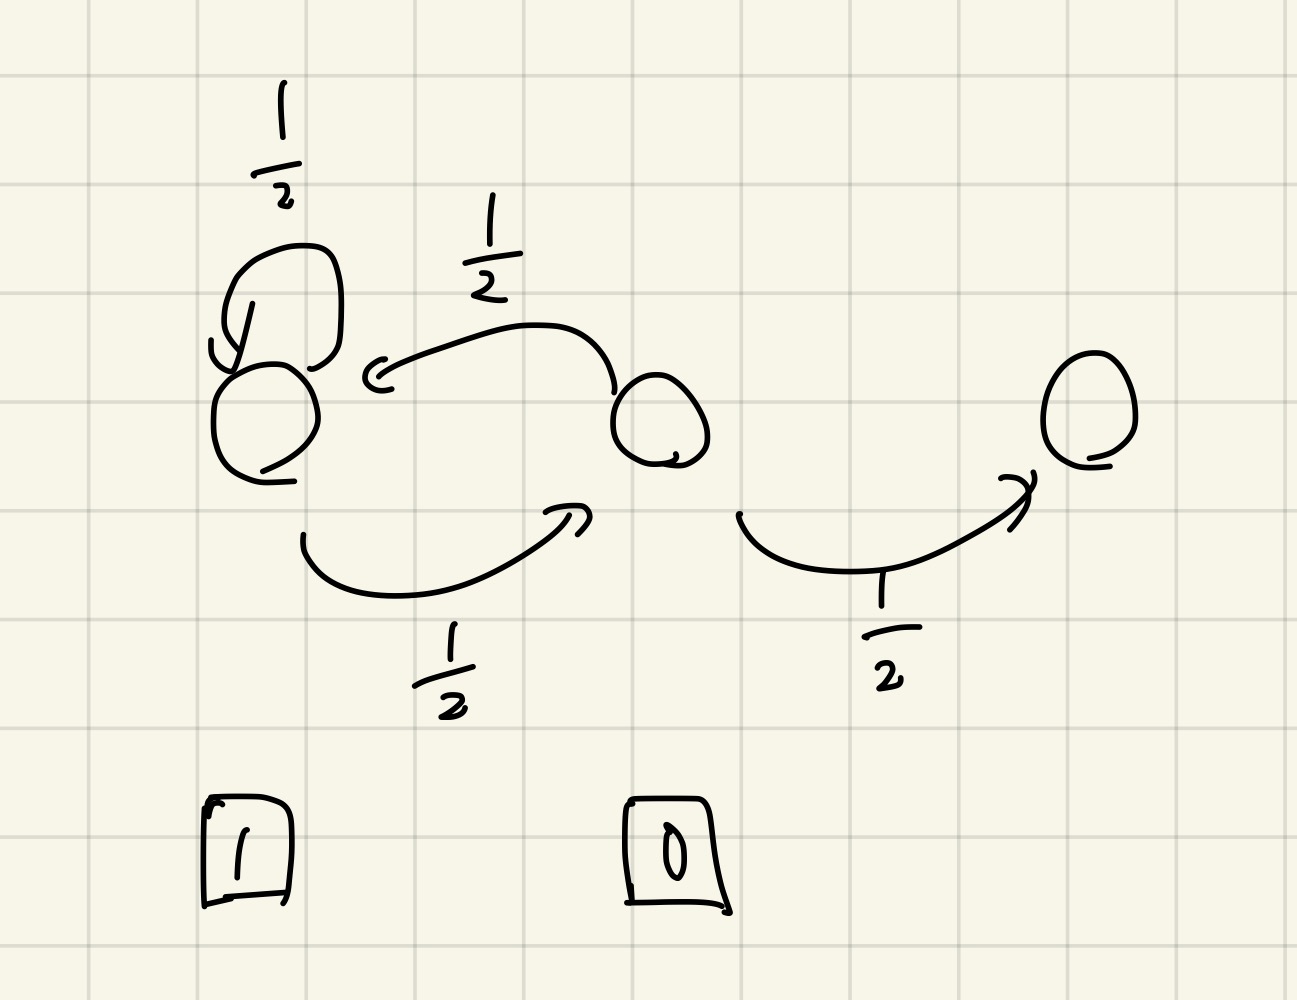 1/2
1/2
1/2
1/2
1 0